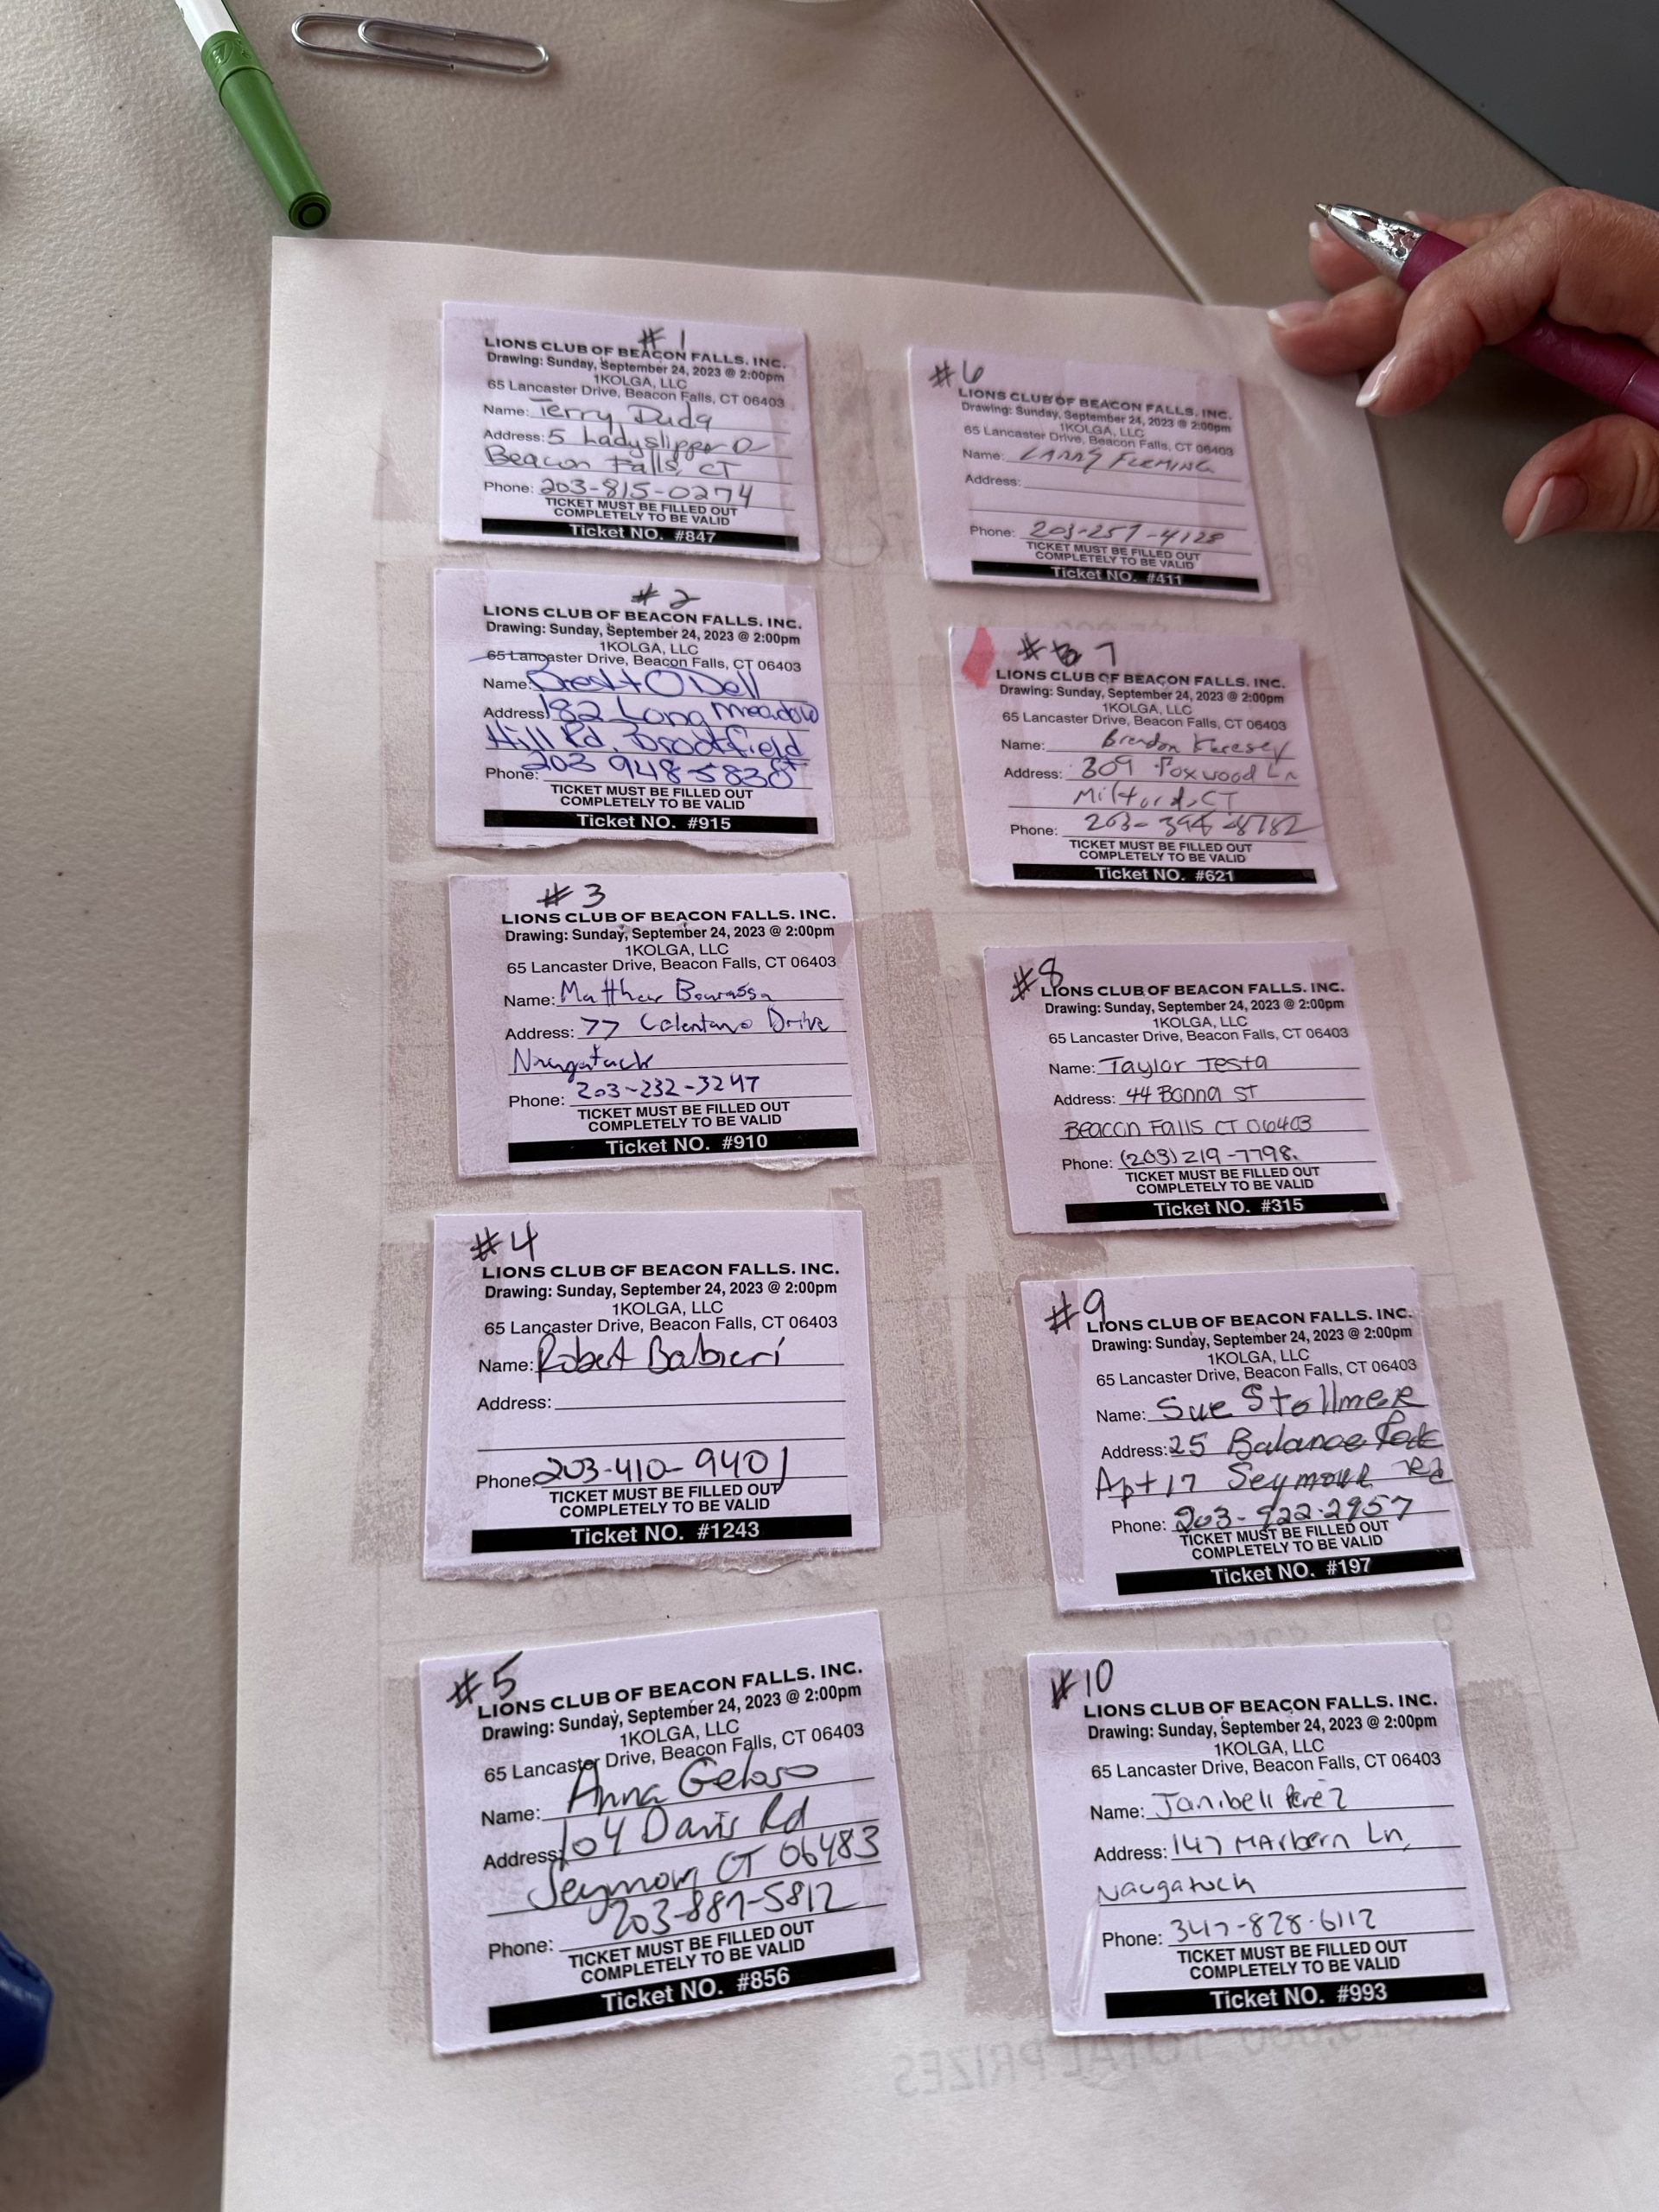 #1
LIONS CLUB OF BEACON FALLS. INC.
Drawing: Sunday, September 24, 2023 @ 2:00pm
1KOLGA, LLC
65 Lancaster Drive, Beacon Falls, CT 06403
Name: Terry Duda
Address: 5 Ladyslipper D
Beacon Falls, CT
Phone: 203-815-0274
TICKET MUST BE FILLED OUT
COMPLETELY TO BE VALID
Ticket NO. #847
#2
LIONS CLUB OF BEACON FALLS. INC.
Drawing: Sunday, September 24, 2023 @ 2:00pm
1KOLGA, LLC
65 Lancaster Drive, Beacon Falls, CT 06403
Name: Brett O'Dell
Address: 182 Long meadow
Hill Rd. Brookfield
Phone: 203 948-5830
TICKET MUST BE FILLED OUT
COMPLETELY TO BE VALID
Ticket NO. #915
#3
LIONS CLUB OF BEACON FALLS. INC.
Drawing: Sunday, September 24, 2023 @ 2:00pm
1KOLGA, LLC
65 Lancaster Drive, Beacon Falls, CT 06403
Name: Matthew Bourassa
Address: 77 Celentano Drive
Naugatuck
Phone: 203-232-3247
TICKET MUST BE FILLED OUT
COMPLETELY TO BE VALID
Ticket NO. #910
#4
LIONS CLUB OF BEACON FALLS. INC.
Drawing: Sunday, September 24, 2023 @ 2:00pm
1KOLGA, LLC
65 Lancaster Drive, Beacon Falls, CT 06403
Name: Robert Babieri
Address:
Phone: 203-410-9401
TICKET MUST BE FILLED OUT
COMPLETELY TO BE VALID
Ticket NO. #1243
#5
LIONS CLUB OF BEACON FALLS. INC.
Drawing: Sunday, September 24, 2023 @ 2:00pm
1KOLGA, LLC
65 Lancaster Drive, Beacon Falls, CT 06403
Name: Anna Geloso
Address: 104 Davis Rd
Seymour CT 06483
Phone: 203-887-5812
TICKET MUST BE FILLED OUT
COMPLETELY TO BE VALID
Ticket NO. #856
#6
LIONS CLUB OF BEACON FALLS. INC.
Drawing: Sunday, September 24, 2023 @ 2:00pm
1KOLGA, LLC
65 Lancaster Drive, Beacon Falls, CT 06403
Name: LARRY FLEMING
Address:
Phone: 203-257-4128
TICKET MUST BE FILLED OUT
COMPLETELY TO BE VALID
Ticket NO. #411
# 7
LIONS CLUB OF BEACON FALLS. INC.
Drawing: Sunday, September 24, 2023 @ 2:00pm
1KOLGA, LLC
65 Lancaster Drive, Beacon Falls, CT 06403
Name: Brendon
Address: 309 Foxwood Ln
Milford, CT
Phone:
TICKET MUST BE FILLED OUT
COMPLETELY TO BE VALID
Ticket NO. #621
#8
LIONS CLUB OF BEACON FALLS. INC.
Drawing: Sunday, September 24, 2023 @ 2:00pm
1KOLGA, LLC
65 Lancaster Drive, Beacon Falls, CT 06403
Name: Taylor Testa
Address: 44 Bonna ST
Beacon Falls CT 06403
Phone: (203) 219-7798.
TICKET MUST BE FILLED OUT
COMPLETELY TO BE VALID
Ticket NO. #315
#9
LIONS CLUB OF BEACON FALLS. INC.
Drawing: Sunday, September 24, 2023 @ 2:00pm
1KOLGA, LLC
65 Lancaster Drive, Beacon Falls, CT 06403
Name: Sue Stollmer
Address: 25 Balance Rock
Apt 17 Seymour
Phone: 203-922-2957
TICKET MUST BE FILLED OUT
COMPLETELY TO BE VALID
Ticket NO. #197
#10
LIONS CLUB OF BEACON FALLS. INC.
Drawing: Sunday, September 24, 2023 @ 2:00pm
1KOLGA, LLC
65 Lancaster Drive, Beacon Falls, CT 06403
Name: Janibell Perez
Address: 147 Marbern Ln,
Naugatuck
Phone: 347-828-6112
TICKET MUST BE FILLED OUT
COMPLETELY TO BE VALID
Ticket NO. #993
TOTAL PRIZES